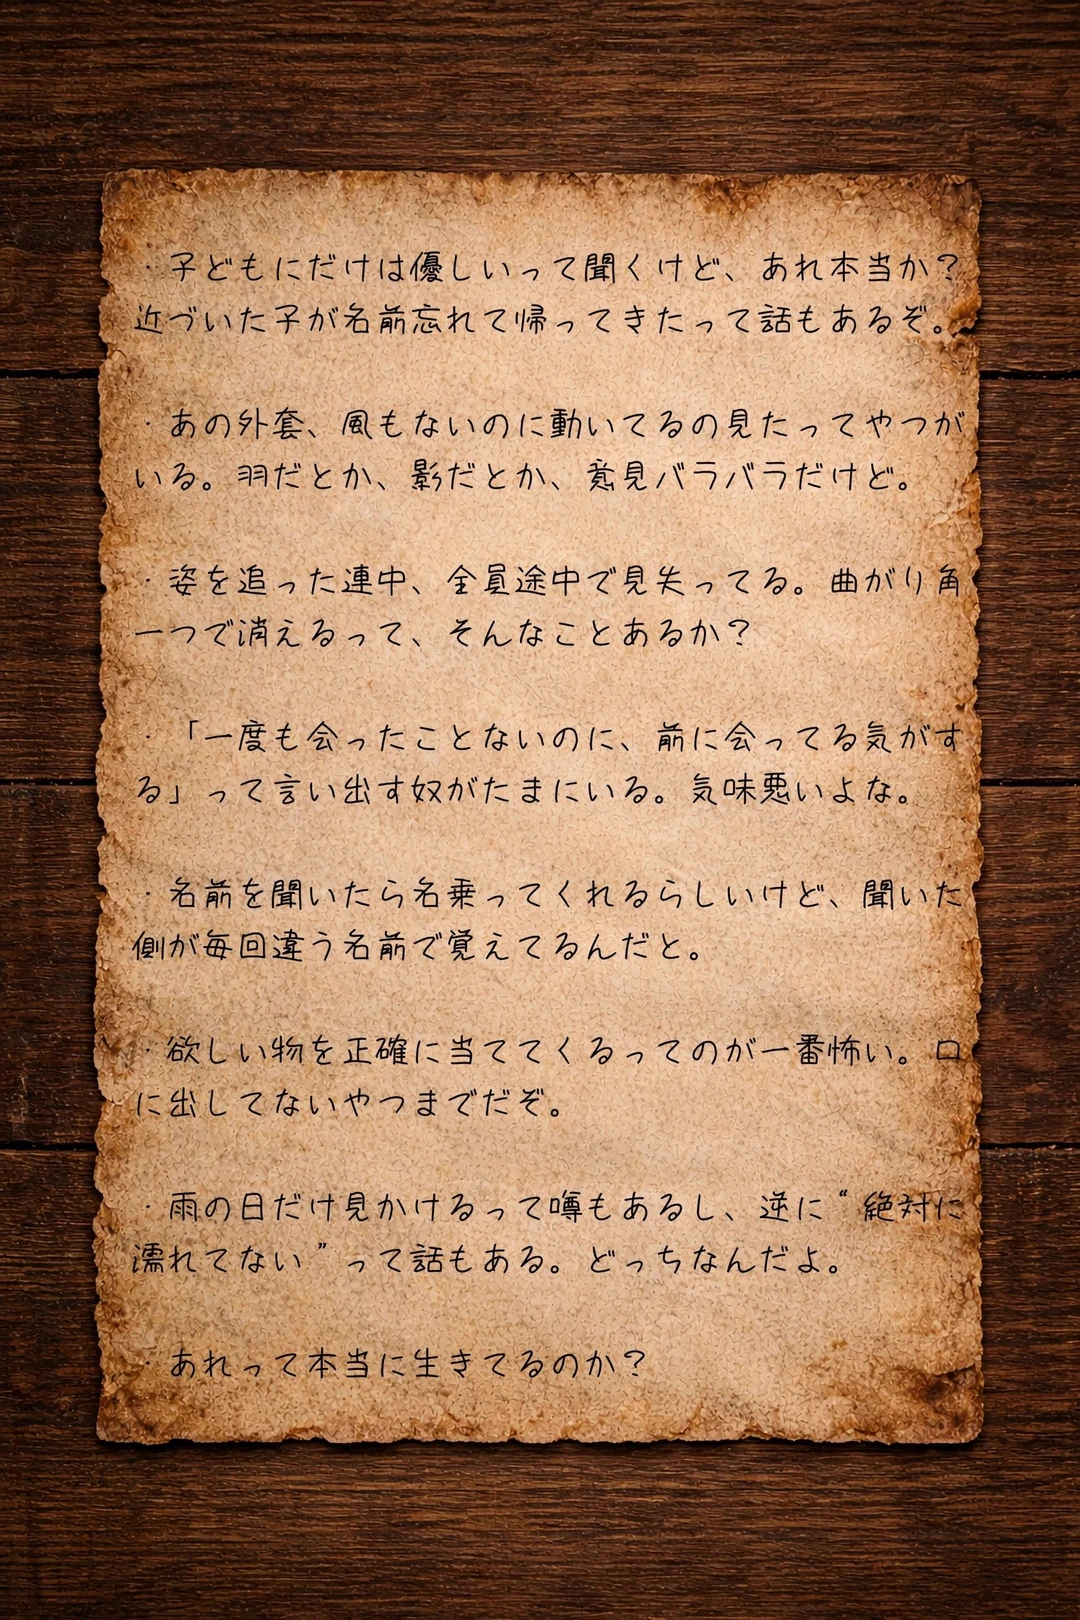 ・子どもにだけは優しいって聞くけど、あれ本当か？
近づいた子が名前忘れて帰ってきたって話もあるぞ。
・あの外套、風もないのに動いてるの見たってやつが
いる。羽だとか、影だとか、意見バラバラだけど。
・姿を追った連中、全員途中で見失ってる。曲がり角
一つで消えるって、そんなことあるか？
・「一度も会ったことないのに、前に会ってる気がす
る」って言い出す奴がたまにいる。気味悪いよな。
・名前を聞いたら名乗ってくれるらしいけど、聞いた
側が毎回違う名前で覚えてるんだと。
・欲しい物を正確に当ててくるってのが一番怖い。口
に出してないやつまでだぞ。
・雨の日だけ見かけるって噂もあるし、逆に“絶対に
濡れてない”って話もある。どっちなんだよ。
・あれって本当に生きてるのか？